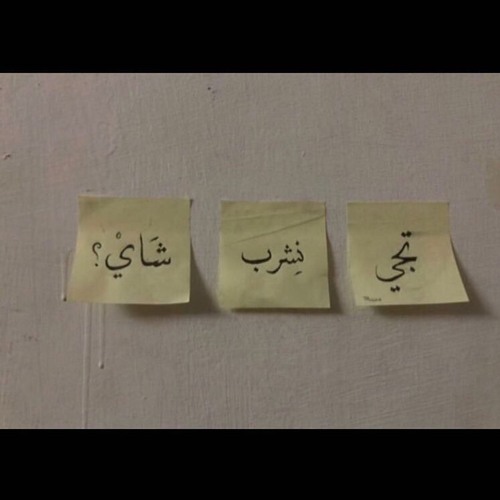 تجي نِشرب شَايْ؟